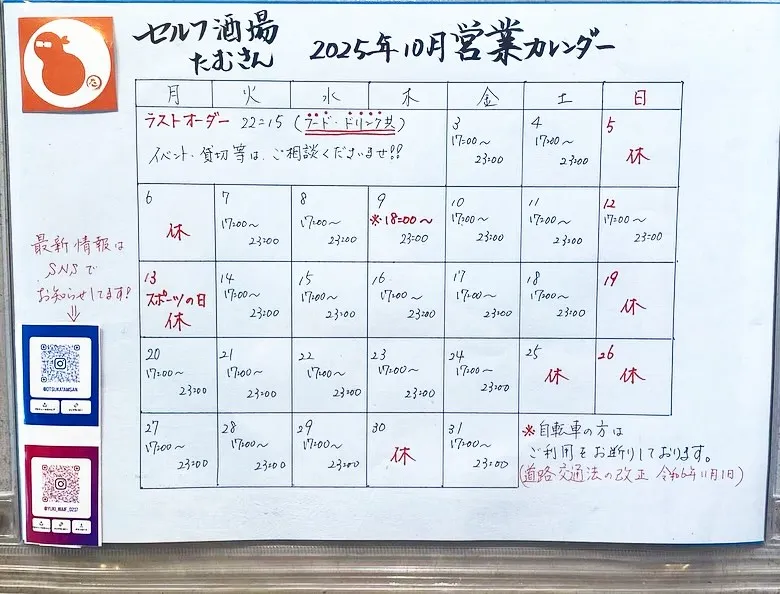 セルフ酒場
たむさん
2025年10月営業カレンダー
た
月 火 水 木 金 土 日
ラストオーダー 22:15 (フード・ドリンク共)
イベント・貸切等は、ご相談くださいませ!!
3 17:00～23:00
4 17:00～23:00
5 休
6 休
7 17:00～23:00
8 17:00～23:00
9 ※18:00～23:00
10 17:00～23:00
11 17:00～23:00
12 17:00～23:00
13 スポーツの日 休
14 17:00～23:00
15 17:00～23:00
16 17:00～23:00
17 17:00～23:00
18 17:00～23:00
19 休
20 17:00～23:00
21 17:00～23:00
22 17:00～23:00
23 17:00～23:00
24 17:00～23:00
25 休
26 休
27 17:00～23:00
28 17:00～23:00
29 17:00～23:00
30 休
31 17:00～23:00
※自転車の方は
ご利用をお断りしております。
(道路交通法の改正 令和6年11月1日)
最新情報は
SNSで
お知らせしてます!
@OTSUKATAMSAN